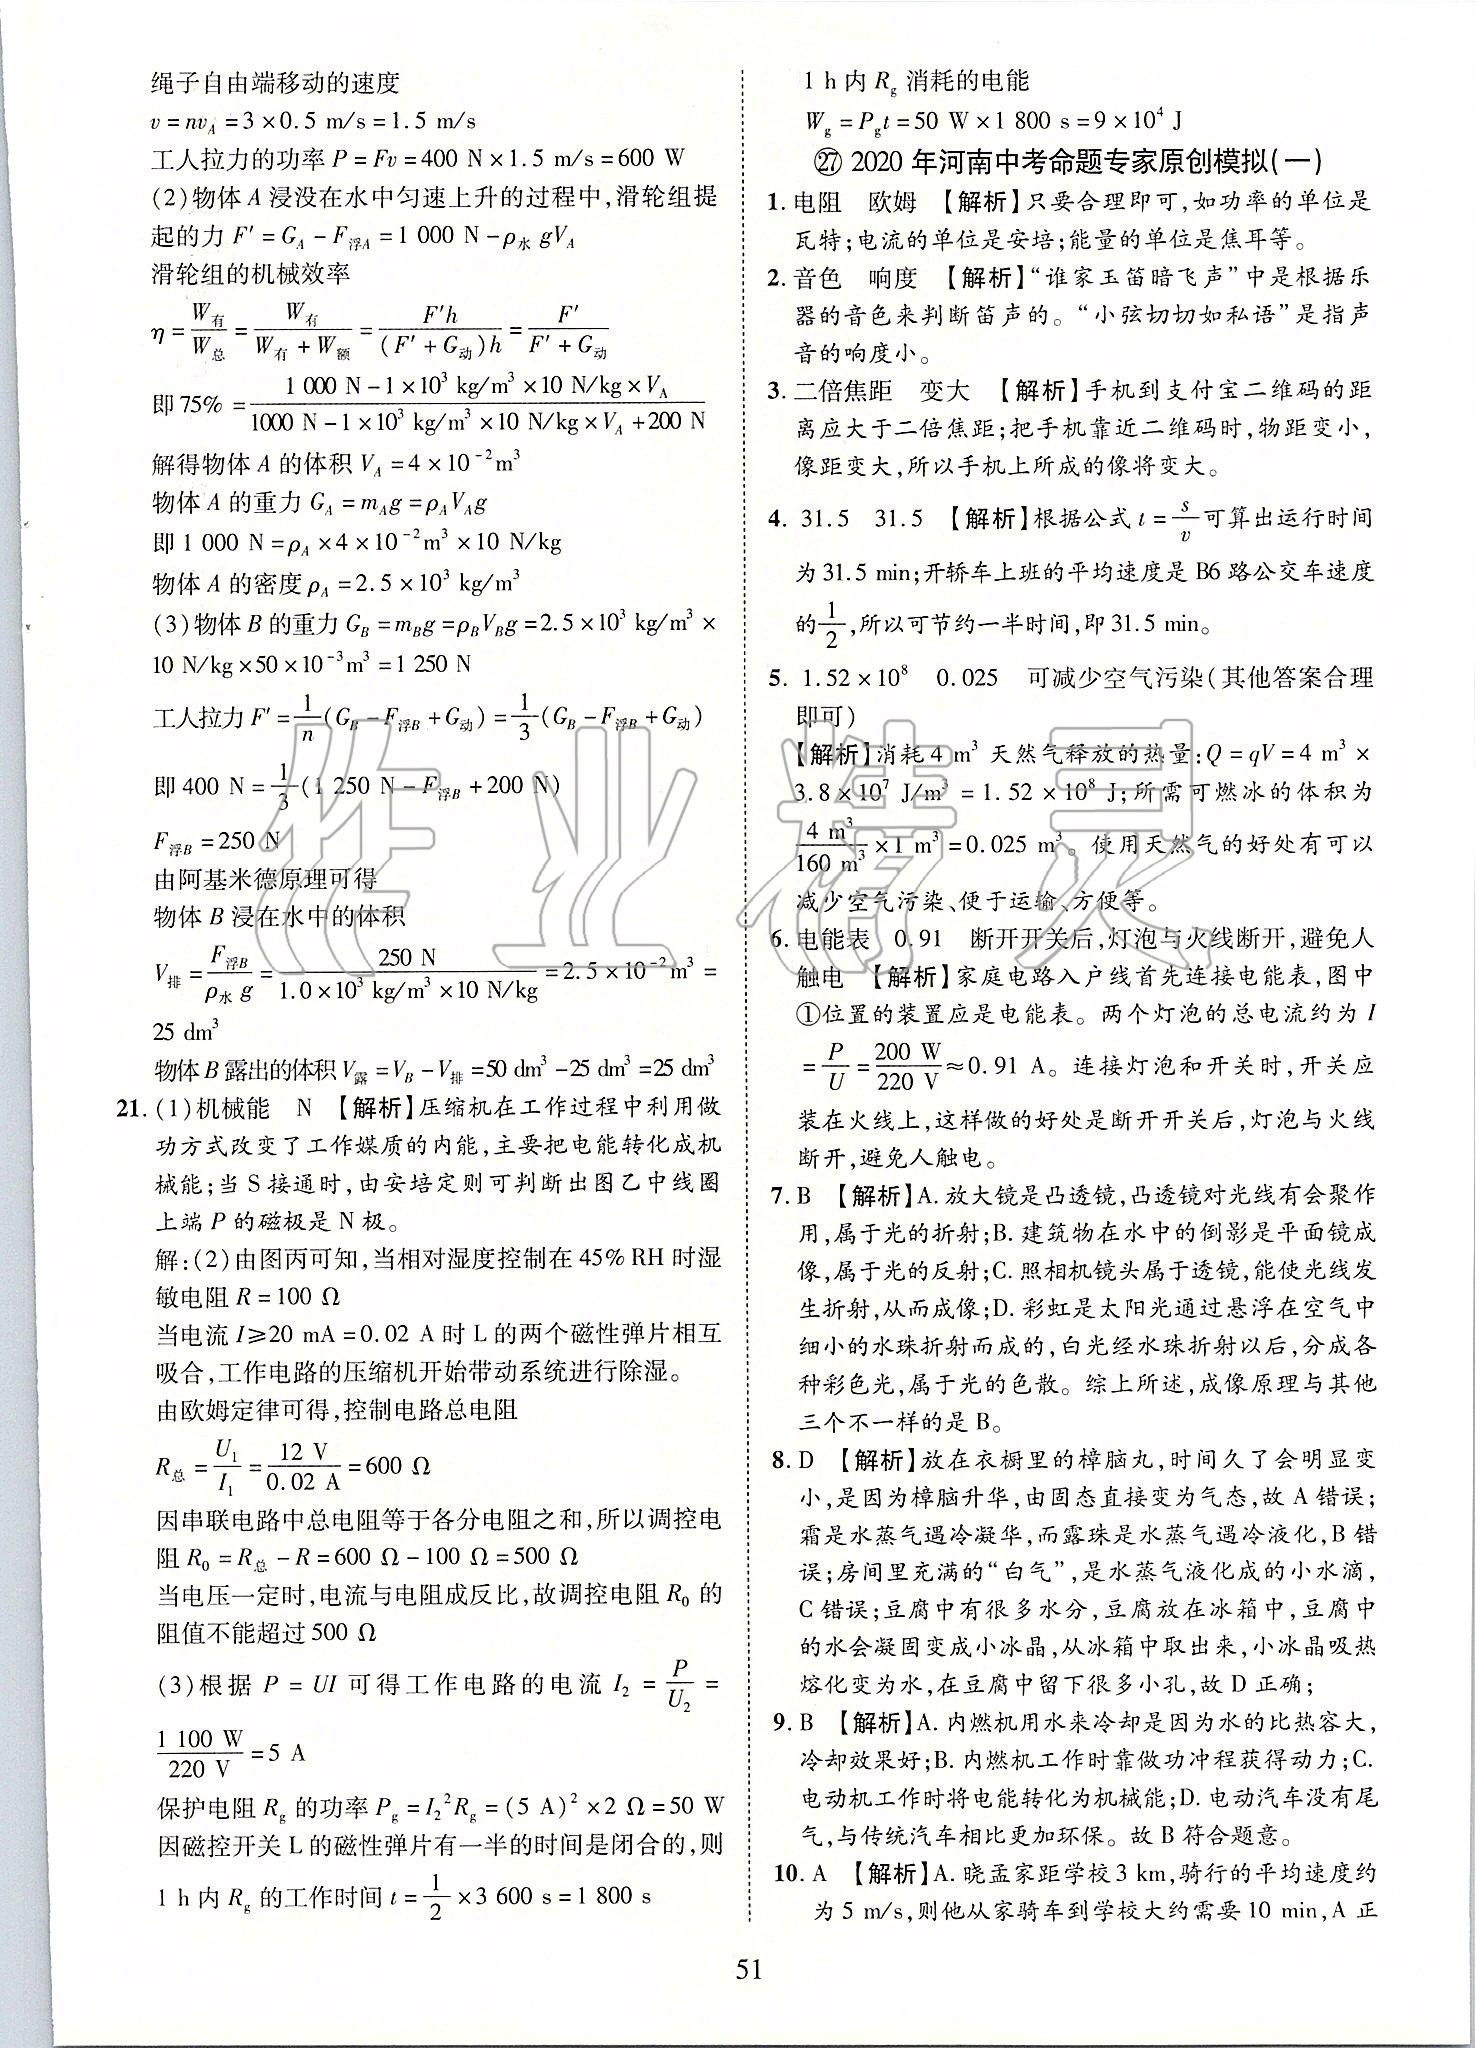 绳子自由端移动的速度
v=nv_A=3×0.5 m/s=1.5 m/s
工人拉力的功率 P=Fv=400 N×1.5 m/s=600 W
(2)物体 A 浸没在水中匀速上升的过程中,滑轮组提
起的力 F′=G_A-F_浮A=1 000 N-ρ_水 gV_A
滑轮组的机械效率
η=W_有/W_总=W_有/(W_有+W_额)=F′h/((F′+G_动)h)=F′/(F′+G_动)
即 75%=(1 000 N-1×10³ kg/m³×10 N/kg×V_A)/(1000 N-1×10³ kg/m³×10 N/kg×V_A+200 N)
解得物体 A 的体积 V_A=4×10⁻²m³
物体 A 的重力 G_A=m_Ag=ρ_AV_Ag
即 1 000 N=ρ_A×4×10⁻²m³×10 N/kg
物体 A 的密度 ρ_A=2.5×10³ kg/m³
(3)物体 B 的重力 G_B=m_Bg=ρ_BV_Bg=2.5×10³ kg/m³×
10 N/kg×50×10⁻³m³=1 250 N
工人拉力 F′=1/n(G_B-F_浮B+G_动)=1/3(G_B-F_浮B+G_动)
即 400 N=1/3(1 250 N-F_浮B+200 N)
F_浮B=250 N
由阿基米德原理可得
物体 B 浸在水中的体积
V_排=F_浮B/(ρ_水 g)=250 N/(1.0×10³ kg/m³×10 N/kg)=2.5×10⁻²m³=
25 dm³
物体 B 露出的体积 V_露=V_B-V_排=50 dm³-25 dm³=25 dm³
21. (1)机械能 N 【解析】压缩机在工作过程中利用做
功方式改变了工作媒质的内能,主要把电能转化成机
械能;当 S 接通时,由安培定则可判断出图乙中线圈
上端 P 的磁极是 N 极。
解:(2)由图丙可知,当相对湿度控制在 45% RH 时湿
敏电阻 R=100 Ω
当电流 I≥20 mA=0.02 A 时 L 的两个磁性弹片相互
吸合,工作电路的压缩机开始带动系统进行除湿。
由欧姆定律可得,控制电路总电阻
R_总=U₁/I₁=12 V/0.02 A=600 Ω
因串联电路中总电阻等于各分电阻之和,所以调控电
阻 R₀=R_总-R=600 Ω-100 Ω=500 Ω
当电压一定时,电流与电阻成反比,故调控电阻 R₀ 的
阻值不能超过 500 Ω
(3)根据 P=UI 可得工作电路的电流 I₂=P/U₂=
1 100 W/220 V=5 A
保护电阻 R_g 的功率 P_g=I₂²R_g=(5 A)²×2 Ω=50 W
因磁控开关 L 的磁性弹片有一半的时间是闭合的,则
1 h 内 R_g 的工作时间 t=1/2×3 600 s=1 800 s
1 h 内 R_g 消耗的电能
W_g=P_gt=50 W×1 800 s=9×10⁴ J
㉗ 2020 年河南中考命题专家原创模拟(一)
1. 电阻 欧姆 【解析】只要合理即可,如功率的单位是
瓦特;电流的单位是安培;能量的单位是焦耳等。
2. 音色 响度 【解析】“谁家玉笛暗飞声”中是根据乐
器的音色来判断笛声的。“小弦切切如私语”是指声
音的响度小。
3. 二倍焦距 变大 【解析】手机到支付宝二维码的距
离应大于二倍焦距;把手机靠近二维码时,物距变小,
像距变大,所以手机上所成的像将变大。
4. 31.5 31.5 【解析】根据公式 t=s/v 可算出运行时间
为 31.5 min;开轿车上班的平均速度是 B6 路公交车速度
的1/2,所以可节约一半时间,即 31.5 min。
5. 1.52×10⁸ 0.025 可减少空气污染(其他答案合理
即可)
【解析】消耗 4 m³ 天然气释放的热量:Q=qV=4 m³×
3.8×10⁷ J/m³=1.52×10⁸ J;所需可燃冰的体积为
4 m³/160 m³×1 m³=0.025 m³。使用天然气的好处有可以
减少空气污染、便于运输、方便等。
6. 电能表 0.91 断开开关后,灯泡与火线断开,避免人
触电 【解析】家庭电路入户线首先连接电能表,图中
①位置的装置应是电能表。两个灯泡的总电流约为 I
=P/U=200 W/220 V≈0.91 A。连接灯泡和开关时,开关应
装在火线上,这样做的好处是断开开关后,灯泡与火线
断开,避免人触电。
7. B 【解析】A. 放大镜是凸透镜,凸透镜对光线有会聚作
用,属于光的折射;B. 建筑物在水中的倒影是平面镜成
像,属于光的反射;C. 照相机镜头属于透镜,能使光线发
生折射,从而成像;D. 彩虹是太阳光通过悬浮在空气中
细小的水珠折射而成的,白光经水珠折射以后,分成各
种彩色光,属于光的色散。综上所述,成像原理与其他
三个不一样的是 B。
8. D 【解析】放在衣橱里的樟脑丸,时间久了会明显变
小,是因为樟脑升华,由固态直接变为气态,故 A 错误;
霜是水蒸气遇冷凝华,而露珠是水蒸气遇冷液化,B 错
误;房间里充满的“白气”,是水蒸气液化成的小水滴,
C 错误;豆腐中有很多水分,豆腐放在冰箱中,豆腐中
的水会凝固变成小冰晶,从冰箱中取出来,小冰晶吸热
熔化变为水,在豆腐中留下很多小孔,故 D 正确;
9. B 【解析】A. 内燃机用水来冷却是因为水的比热容大,
冷却效果好;B. 内燃机工作时靠做功冲程获得动力;C.
电动机工作时将电能转化为机械能;D. 电动汽车没有尾
气,与传统汽车相比更加环保。故 B 符合题意。
10. A 【解析】A. 晓孟家距学校 3 km,骑行的平均速度约
为 5 m/s,则他从家骑车到学校大约需要 10 min,A 正
51
作业精灵